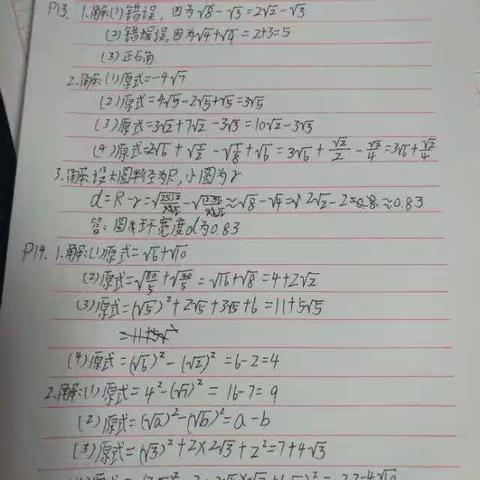 P13. 1.解:(1)错误,因为√8-√3=2√2-√3
(2)错误,因为√4+√9=2+3=5
(3)正确
2.解:(1)原式=-4√7
(2)原式=4√5-2√5+√5=3√5
(3)原式=3√2+7√2-3√3=10√2-3√3
(4)原式=2√6+√2/2-√3/4+√6=3√6+√2/2-√2/4=3√6+√2/4
3.解:设大圆半径为R,小圆为r
d=R-r=≈√8-√4=2√2-2≈0.83
答:圆环宽度d为0.83
P14. 1.解:(1)原式=√6+√10
(2)原式=√80/5+√40/5=√16+√8=4+2√2
(3)原式=(√5)²+2√5+3√5+6=11+5√5
=11+5√
(4)原式=(√6)²-(√2)²=6-2=4
2.解:(1)原式=4²-(√7)²=16-7=9
(2)原式=(√a)²-(√b)²=a-b
(3)原式=(√3)²+2×2√3+2²=7+4√3